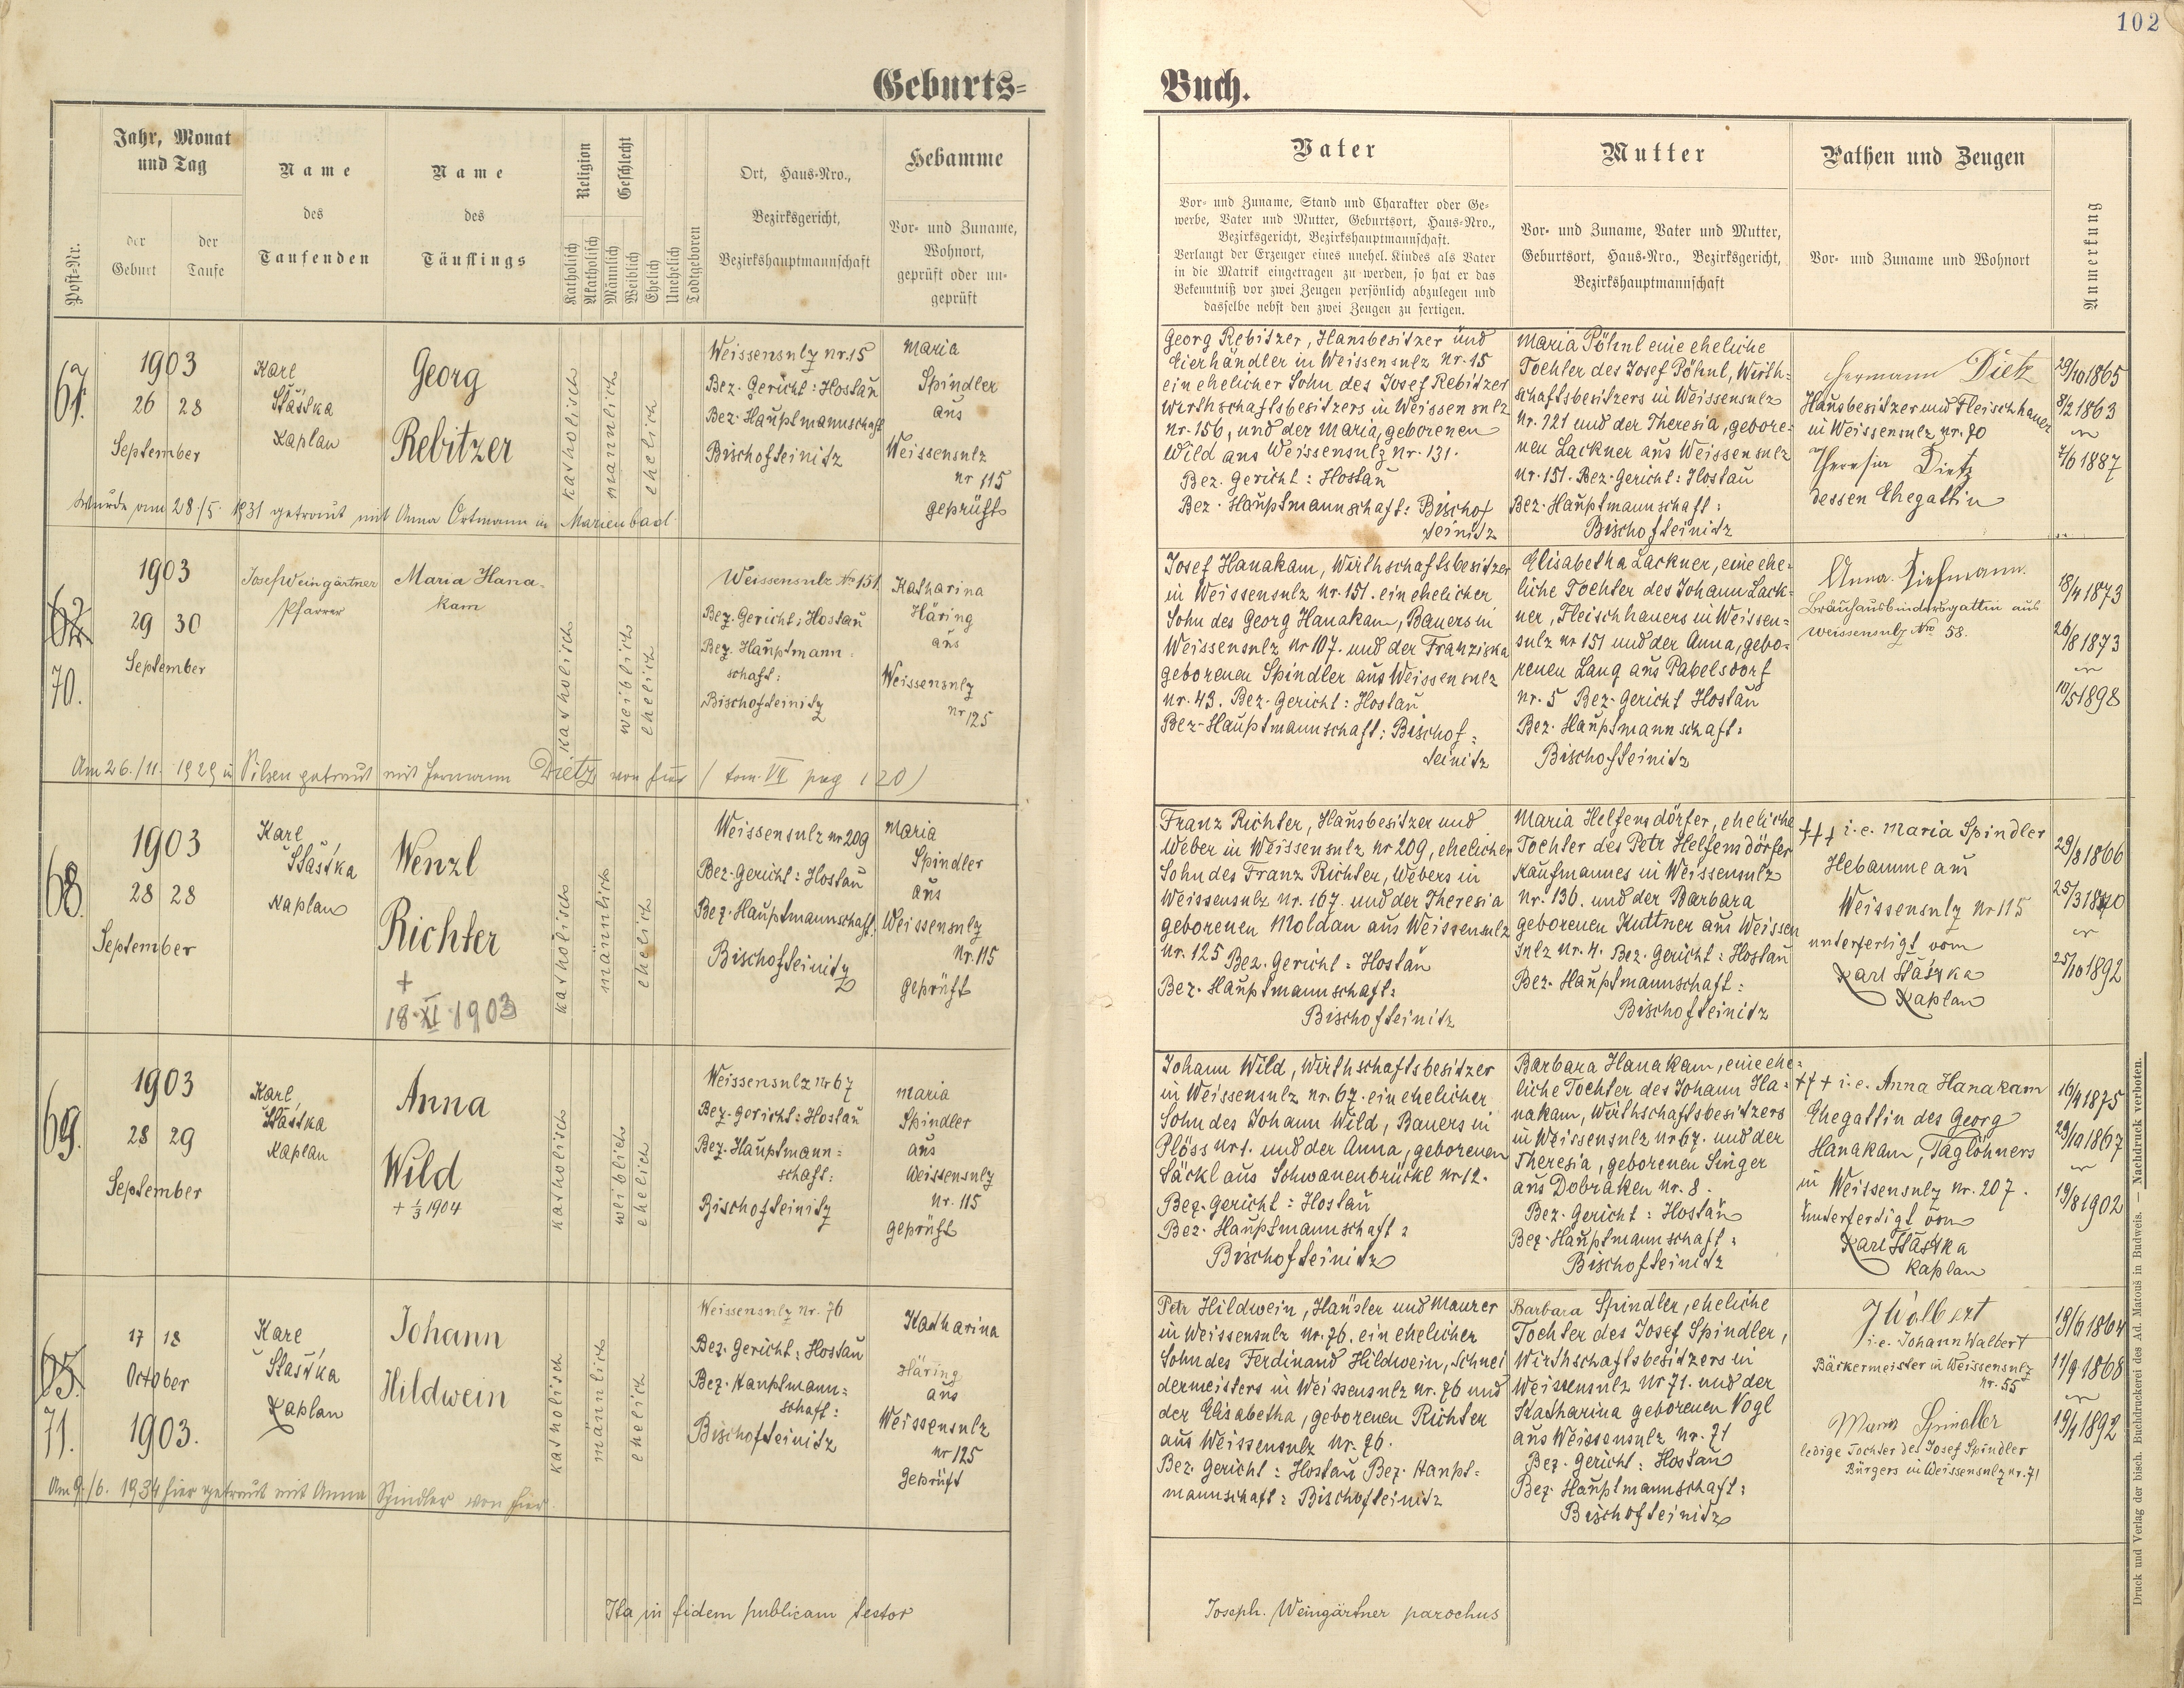 102
Geburts=
Buch.
Post=Nr.
Jahr, Monat
und Tag
der
Geburt
der
Taufe
Name
des
Taufenden
Name
des
Täuflings
Religion
Katholisch
Akatholisch
Geschlecht
Männlich
Weiblich
Ehelich
Unehelich
Todtgeboren
Ort, Haus=Nro.,
Bezirksgericht,
Bezirkshauptmannschaft
Hebamme
Vor= und Zuname,
Wohnort,
geprüft oder un=
geprüft
Vater
Vor= und Zuname, Stand und Charakter oder Ge=
werbe, Vater und Mutter, Geburtsort, Haus=Nro.,
Bezirksgericht, Bezirkshauptmannschaft.
Verlangt der Erzeuger eines unehel. Kindes als Vater
in die Matrik eingetragen zu werden, so hat er das
Bekenntniß vor zwei Zeugen persönlich abzulegen und
dasselbe nebst den zwei Zeugen zu fertigen.
Mutter
Vor= und Zuname, Vater und Mutter,
Geburtsort, Haus=Nro., Bezirksgericht,
Bezirkshauptmannschaft
Pathen und Zeugen
Vor= und Zuname und Wohnort
Anmerkung
67.
1903
26 28
September
Karl
Šťastka
Kaplan
Georg
Rebitzer
katholisch
männlich
ehelich
Weissensulz nr. 15
Bez. Gericht: Hostau
Bez. Hauptmannschaft
Bischofteinitz
Maria
Spindler
aus
Weissensulz
nr 115
geprüft
Wurde am 28./5. 1931 getraut mit Anna Ortmann in Marienbad.
Georg Rebitzer, Hausbesitzer und
Eierhändler in Weissensulz nr. 15
ein ehelicher Sohn des Josef Rebitzer
Wirthschaftsbesitzers in Weissensulz
nr. 156, und der Maria, geborenen
Wild aus Weissensulz nr. 131.
Bez. Gericht: Hostau
Bez. Hauptmannschaft: Bischof
teinitz
Maria Pöhnl eine eheliche
Tochter des Josef Pöhnl, Wirth=
schaftsbesitzers in Weissensulz
nr. 121 und der Theresia, gebore=
nen Lackner aus Weissensulz
nr. 151. Bez. Gericht: Hostau
Bez. Hauptmannschaft:
Bischofteinitz
Hermann Dietz
Hausbesitzer und Fleischhauer
in Weissensulz nr. 70
Theresia Dietz
dessen Ehegattin
29/10 1865
8/2 1863
7/6 1887
70.
1903
29 30
September
Josef Weingärtner
Pfarrer
Maria Hana=
kam
katholisch
weiblich
ehelich
Weissensulz No 151
Bez. Gericht: Hostau
Bez. Hauptmann=
schaft:
Bischofteinitz
Katharina
Häring
aus
Weissensulz
nr 125
Am 26./11. 1929 in Pilsen getraut mit Hermann Dietz von hier (tom. VII pag 120)
Josef Hanakam, Wirthschaftsbesitzer
in Weissensulz nr. 151. ein ehelicher
Sohn des Georg Hanakam, Bauers in
Weissensulz nr 107. und der Franziska
geborenen Spindler aus Weissensulz
nr. 43. Bez. Gericht: Hostau
Bez-Hauptmannschaft: Bischof=
teinitz
Elisabetha Lackner, eine ehe=
liche Tochter des Johann Lack=
ner, Fleischhauers in Weissen=
sulz nr 151 und der Anna, gebo=
renen Lang aus Pabelsdorf
nr. 5 Bez-Gericht Hostau
Bez. Hauptmannschaft:
Bischofteinitz
Anna
Bräuhausbindersgattin aus
Weissensulz Nro 58.
18/4 1873
26/8 1873
10/5 1898
68.
1903
28 28
September
Karl
Šťastka
Kaplan
Wenzl
Richter
+
18. XI 1903
katholisch
männlich
ehelich
Weissensulz nr 209
Bez-Gericht: Hostau
Bez. Hauptmannschaft:
Bischofteinitz
Maria
Spindler
aus
Weissensulz
Nr. 115
geprüft
Franz Richter, Hausbesitzer und
Weber in Weissensulz nr 209, ehelicher
Sohn des Franz Richter, Webers in
Weissensulz nr. 167. und der Theresia
geborenen Moldan aus Weissensulz
nr. 125 Bez. Gericht: Hostau
Bez. Hauptmannschaft:
Bischofteinitz
Maria Helfensdörfer, eheliche
Tochter des Petr Helfensdörfer
Kaufmannes in Weissensulz
nr. 136. und der Barbara
geborenen Kuttner aus Weissen
sulz nr. 4. Bez. Gericht: Hostau
Bez. Hauptmannschaft:
Bischofteinitz
+++ i.e. Maria Spindler
Hebamme aus
Weissensulz nr 115
unterfertigt vom
Karl Šťastka
Kaplan
29/8 1866
25/3 1870
25/10 1892
69.
1903
28 29
September
Karl
Šťastka
Kaplan
Anna
Wild
+ 1/3 1904
katholisch
weiblich
ehelich
Weissensulz Nr 67
Bez-Gericht: Hostau
Bez. Hauptmann=
schaft:
Bischofteinitz
Maria
Spindler
aus
Weissensulz
nr. 115
geprüft
Johann Wild, Wirthschaftsbesitzer
in Weissensulz nr. 67. ein ehelicher
Sohn des Johann Wild, Bauers in
Plöss nr 1. und der Anna, geborenen
Säckl aus Schwanenbrückl nr 12.
Bez. Gericht: Hostau
Bez. Hauptmannschaft:
Bischofteinitz
Barbara Hanakam, eine ehe=
liche Tochter des Johann Ha=
nakam, Wirthschaftsbesitzers
in Weissensulz nr 67. und der
Theresia, geborenen Singer
aus Dobraken nr. 8.
Bez. Gericht: Hostau
Bez. Hauptmannschaft:
Bischofteinitz
+++ i.e. Anna Hanakam
Ehegattin des Georg
Hanakam, Taglöhners
in Weissensulz nr. 207.
Unterfertigt vom
Karl Šťastka
Kaplan
16/4 1875
29/10 1867
19/8 1902
71.
17 18
October
1903.
Karl
Šťastka
Kaplan
Johann
Hildwein
katholisch
männlich
ehelich
Weissensulz nr. 76
Bez. Gericht: Hostau
Bez. Hauptmann=
schaft:
Bischofteinitz
Katharina
Häring
aus
Weissensulz
nr 125
Geprüft
Am 9./6. 1934 hier getraut mit Anna Spindler von hier.
Petr Hildwein, Häusler und Maurer
in Weissensulz nr. 76. ein ehelicher
Sohn des Ferdinand Hildwein, Schnei
dermeisters in Weissensulz nr. 76 und
der Elisabetha, geborenen Richter
aus Weissensulz nr. 76.
Bez. Gericht: Hostau Bez. Haupt=
mannschaft: Bischofteinitz
Barbara Spindler, eheliche
Tochter des Josef Spindler,
Wirthschaftsbesitzers in
Weissensulz Nr 71. und der
Katharina geborenen Vogl
aus Weissensulz nr. 71
Bez. Gericht: Hostau
Bez. Hauptmannschaft:
Bischofteinitz
J Walbert
i.e. Johann Walbert
Bäckermeister in Weissensulz
nr. 55
Maria Spindler
ledige Tochter des Josef Spindler
Bürgers in Weissensulz nr. 71
19/6 1864
11/9 1868
19/4 1892
Ita in fidem publicam testor
Joseph. Weingärtner parochus
Druck und Verlag der bisch. Buchdruckerei des Ad. Matouš in Budweis. — Nachdruck verboten.